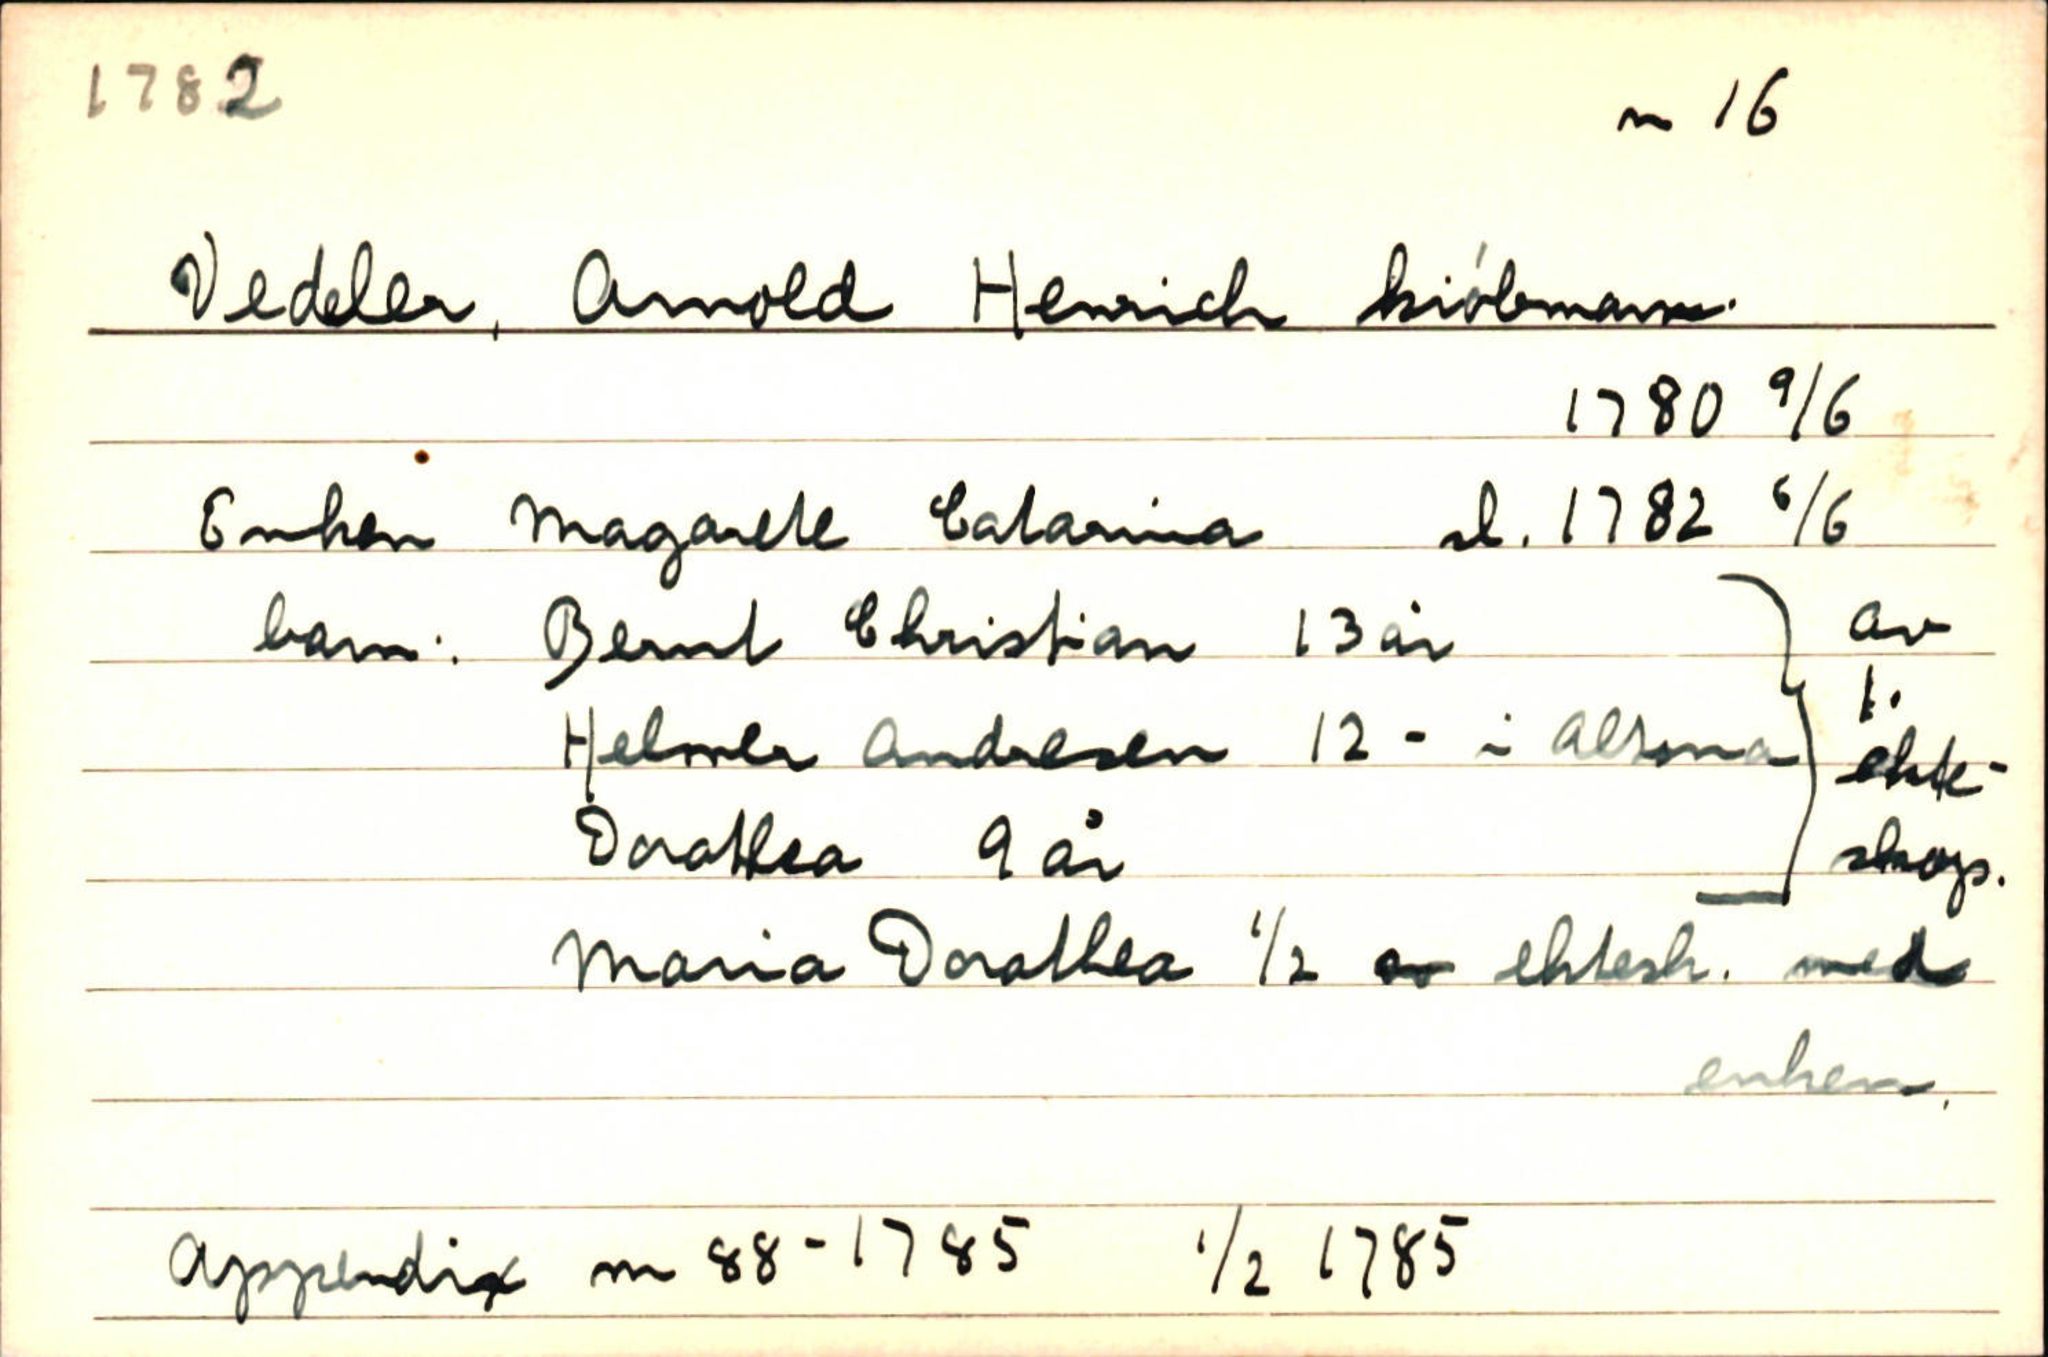 1782
n 16
Vedeler, Arnold Henrich kiöbmann.
1780 9/6
Enken Magarete Catarina sl. 1782 6/6
barn: Bernt Christian 13 år
av
1.
Helmer Andresen 12 - i Altona
ekte-
Dorathea 9 år
skap.
Maria Dorathea 1/2 ektesk. med
enken.
Appendix n 88-1785 1/2 1785